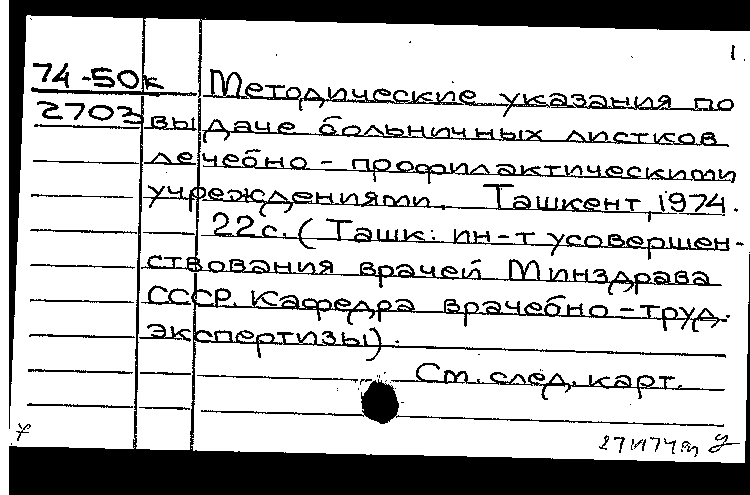 1.
74-50к Методические указания по
2703 выдаче больничных листков
лечебно-профилактическими
учреждениями. Ташкент, 1974.
22с. (Ташк. ин-т усовершен-
ствования врачей Минздрава
СССР. Кафедра врачебно-труд.
экспертизы).
См. след. карт.